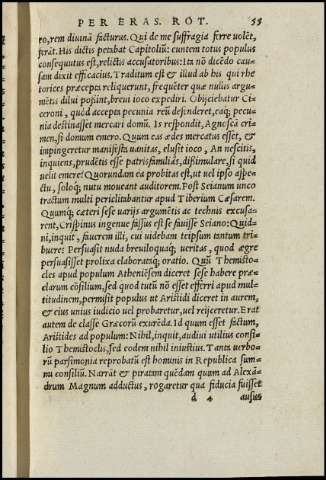 PER ERAS. ROT. 55
ro, rem divinā facturus. Qui de me suffragia ferre volēt,
ferāt. His dictis petebat Capitoliū: euntem totus populus
consequutus est, relictis accusatoribus: Ita nō dicēdo cau-
sam dixit efficacius. Traditum est & illud ab his qui rhe
torices præcepta reliquerunt, frequēter quæ nullus argu-
mētis dilui possint, brevi ioco expediri. Obijciebatur Ci-
ceroni, quòd accepta pecunia reū defenderet, eaq; pecu-
nia destinasset mercari domū. Is respondit, Agnoscā cri-
men, si domum emero. Quum eas ædes mercatus esset, &
impingeretur manifesta vanitas, elusit ioco, An nescitis,
inquiens, prudētis esse patrisfamiliâs, dißimulare, si quid
velit emere? Quorundam ea probitas est, ut vel ipso aspe-
ctu, soloq; nutu moveant auditorem. Post Seianum unco
tractum multi periclitabantur apud Tiberium Cæsarem.
Quumq; cæteri sese varijs argumētis ac technis excusa-
rent, Crispinus ingenue fassus est se favisse Seiano: Quid-
ni, inquit, faverem illi, cui videbam teipsum tantum tri-
buere? Persuasit nuda breviloquaq; veritas, quod ægre
persuasisset prolixa elaborataq; oratio. Quū Themisto-
cles apud populum Atheniēsem diceret sese habere præ-
clarum cōsilium, sed quod tutū nō esset efferri apud mul-
titudinem, permisit populus ut Aristidi diceret in aurem,
& eius unius iudicio vel probaretur, vel reijceretur. Erat
autem de classe Græcorū exurēda. Id quum esset factum,
Aristides ad populum: Nihil, inquit, audivi utilius consi-
lio Themistoclis, sed eodem nihil iniustius. Tanta verbo-
rū parsimonia reprobatū est hominis in Republica sum-
mi consiliū. Narrāt & piratam quēdam quum ad Alexā-
drum Magnum adductus, rogaretur qua fiducia fuisset
d 4 ausus